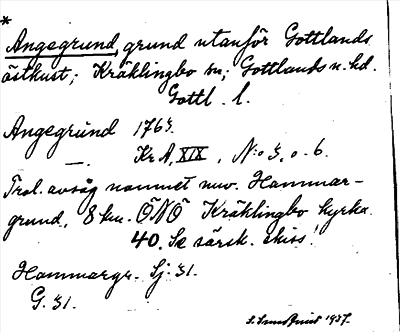 *
Angegrund, grund utanför Gottlands
östkust; Kräklingbo sn; Gottlands n. hd.
Gottl. l.
Angegrund 1763.
—. Kr A, XIX, N:o 3, o. 6.
Trol. avsåg namnet nuv. Hammar-
grund, 8 km. ÖNÖ Kräklingbo kyrka.
40. Se särsk. skiss!
Hammargr. Sj. 31.
G. 31.
1937.